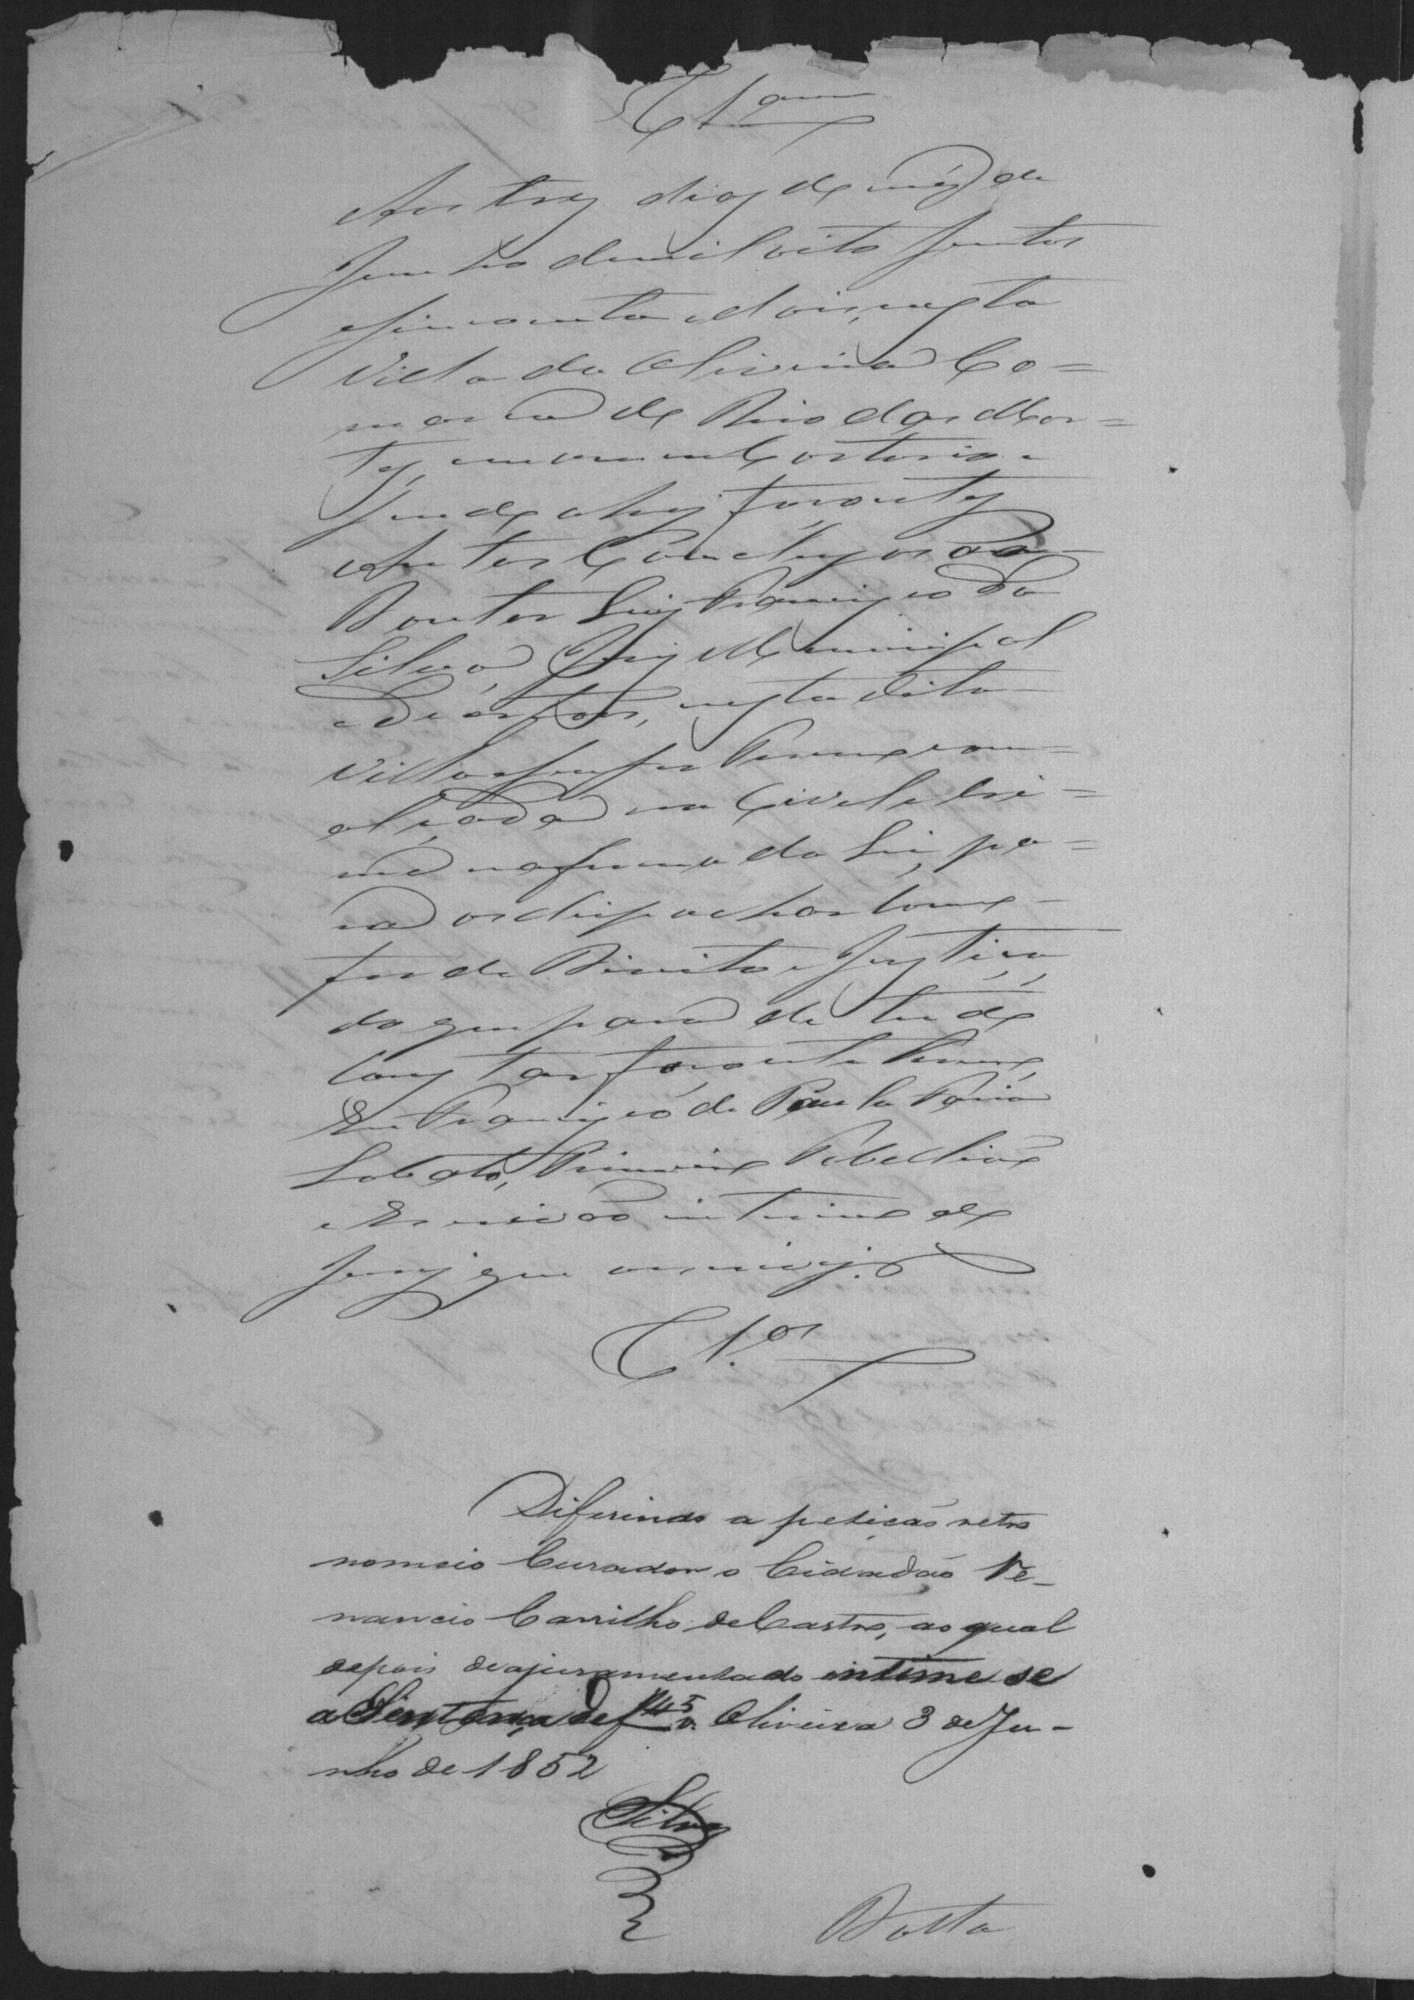 Cl.am
Aos trez dias do mez de
Junho de mil oito sentos
e sincoenta e dois, nesta
Villa da Oliveira Co=
marca do Rio das Mor=
tes, em o meu Cartorio e
sendo ahi faço estes
Autos Concluzos ao
Doutor Luiz Francisco da
Silva, Juiz Municipal
e de orfaos, nesta dita
Villa e seu Termo com
alçada no Civel e Cri=
me na forma da Lei, pa=
ra os dispachar como
for de Direito e Justiça,
do que para de tudo
constar faço este Termo,
Eu Francisco de Paula Faria
Lobato, Primeiro Tabellião
e Escrivão interino de
Juiz que escrevy.
Cl.os
Diferindo a petição retro
nomeio Curador o Cidadão Ve-
nancio Carrilho de Castro, ao qual
depois de ajuramentado intime se
a Sentença de f 45 v. Oliveira 3 de Ju-
nho de 1852
Silva
Datta